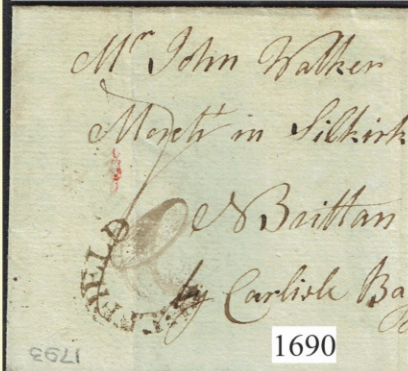 Mr John Walker
Mercht in Silkirk
N Brittan
by Carlisle Ba
1690
1793